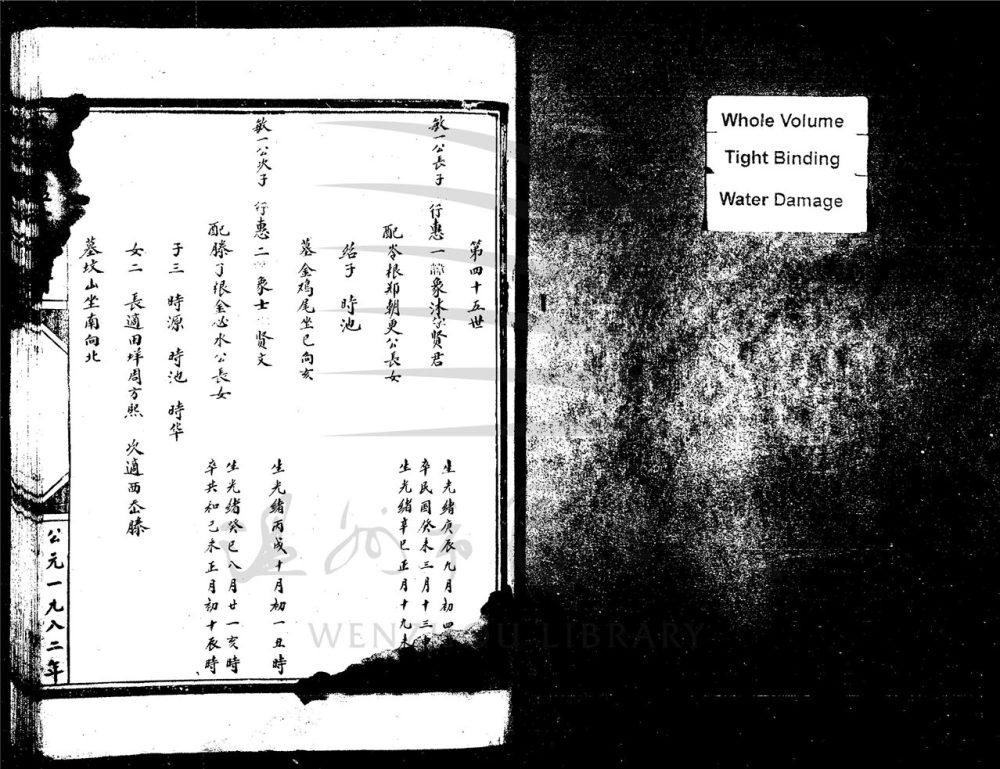 第四十五世
敏一公長子 行惠一 象沐 賢君
生光緒庚辰九月初四
卒民国癸未三月十三
配岺根郑朝更公長女
生光緒辛巳正月十九
绍子 時池
墓金鸡尾坐巳向亥
敏一公次子 行惠二 象士 賢文
生光緒丙戌十月初一丑時
配滕丁垠金必水公長女
生光緒癸巳八月廿一亥時
卒共和己未正月初十辰時
子三 時源 時池 時华
女二 長適田垟周方熙 次適西岙滕
墓坟山坐南向北
公元一九八二年
Whole Volume
Tight Binding
Water Damage
WENZHOU LIBRARY